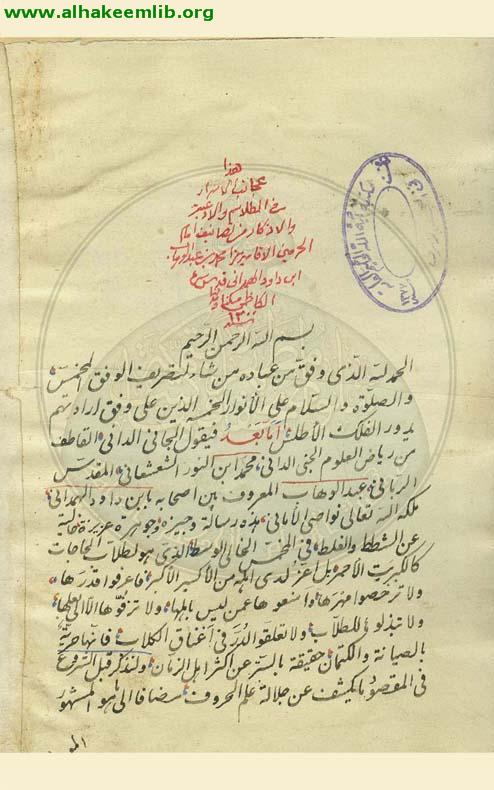 www.alhakeemlib.org
هذا
عجائب الاسرار
في الطلاسم والادعية
والاذكار من تصانيف امام
الحرمين الاقا ميرزا محمد بن عبد الوهاب
ابن داود الهمداني
الكاظمي
١٣٠٠
بسم الله الرحمن الرحيم
الحمد لله الذي وفق من عباده من شاء لتصريف الوفق المخمس
والصلوة والسلام على الانوار الخمسة الذين على وفق ارادتهم
يدور الفلك الاطلس اما بعد فيقول الجاني الداني القاطف
من رياض العلوم الجنى الداني محمد ابن النور الشعشعاني المقدس
الرباني عبد الوهاب المعروف بين اصحابه بابن داود الهمداني
ملكه الله تعالى نواصي الاماني هذه رسالة وجيزة وجوهرة عزيزة خالية
عن الشطط والغلط في المخمس الخالي الوسط الذي هو لطلاب الحاجات
كالكبريت الاحمر بل اعز لدى اهله من الاكسير الاكبر فاعرفوا قدرها
ولا ترخصوا مهرها وامنعوها عمن ليس باهلها ولا تزفوها الا الى بعلها
ولا تبذلوها للطلاب ولا تعلقوا الدرر في اعناق الكلاب فانها حرية
بالصيانة والكتمان حقيقة بالستر عن اكثر اهل الزمان ولنذكر قبل الشروع
في المقصود ما يكشف عن جلالة علم الحروف مضافا الى ما هو المشهور